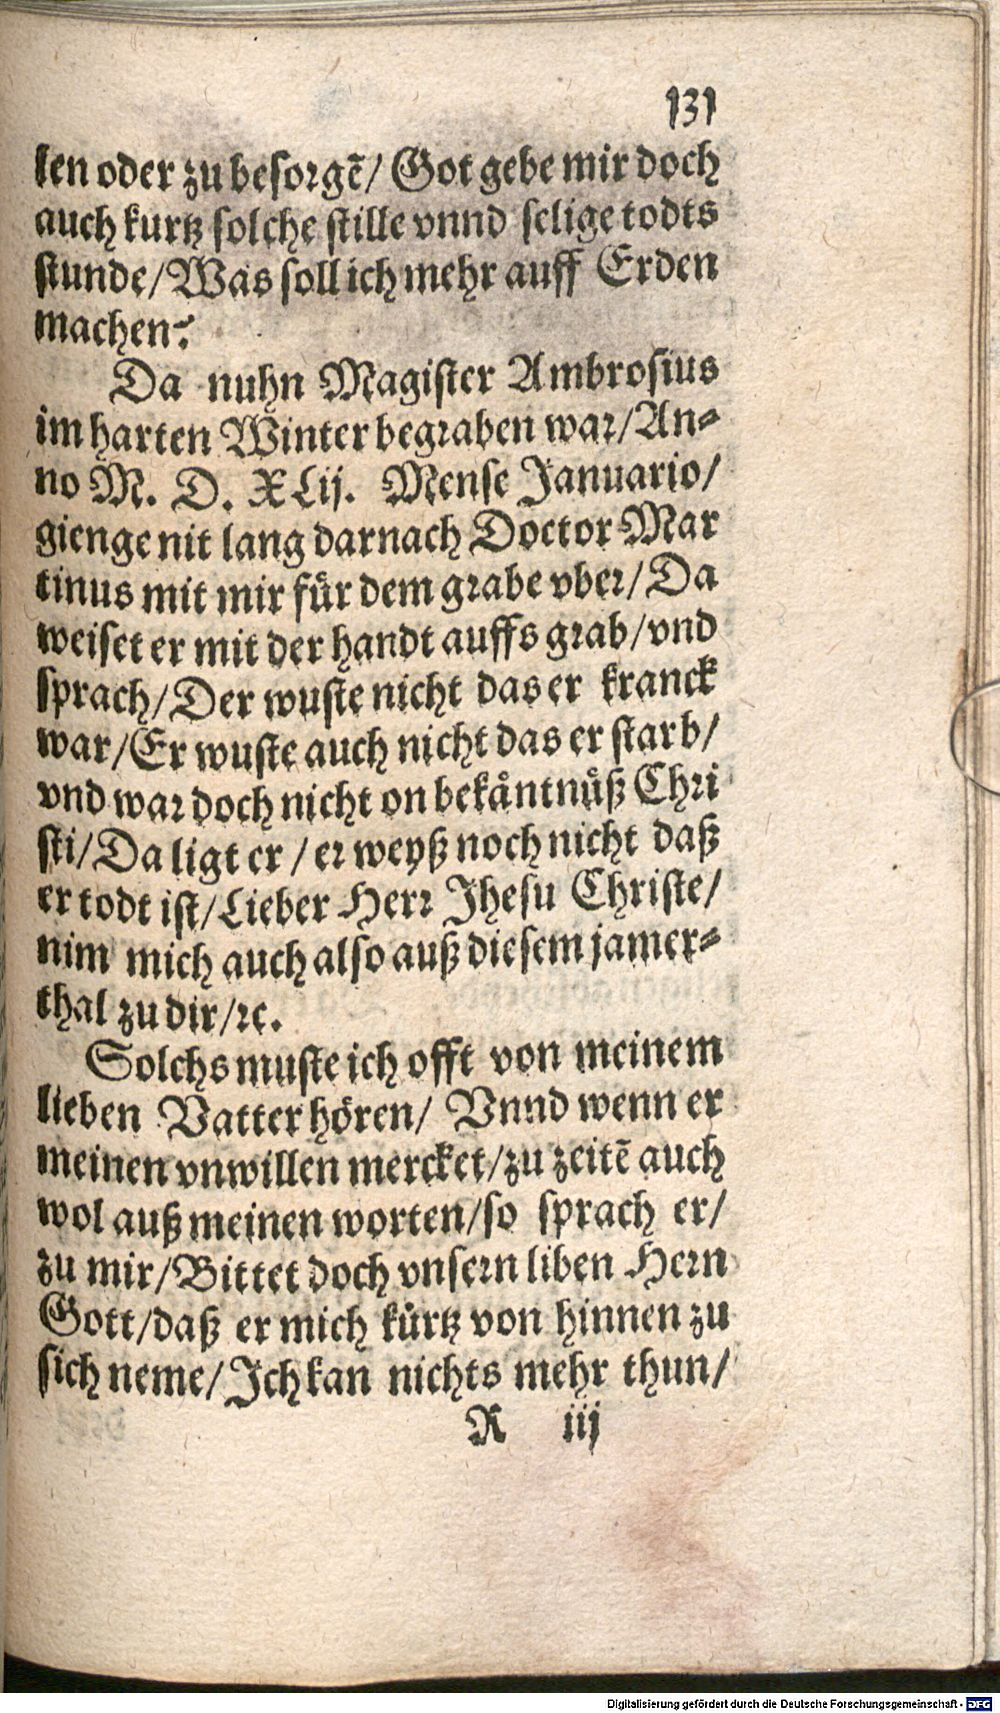 131
len oder zu besorgẽ/ Got gebe mir doch
auch kurtz solche stille vnnd selige todts
stunde/Was soll ich mehr auff Erden
machen?
Da nuhn Magister Ambrosius
im harten Winter begraben war/An-
no M. D. XLij. Mense Januario/
gienge nit lang darnach Doctor Mar
tinus mit mir für dem grabe vber/Da
weiset er mit der handt auffs grab/vnd
sprach/Der wuste nicht das er kranck
war/Er wuste auch nicht das er starb/
vnd war doch nicht on bekäntnüß Chri
sti/Da ligt er/er weyß noch nicht daß
er todt ist/Lieber Herr Jhesu Christe/
nim mich auch also auß diesem jamer-
thal zu dir/ꝛc.
Solchs muste ich offt von meinem
lieben Vatter hören/ Vnnd wenn er
meinen vnwillen mercket/zu zeitẽ auch
wol auß meinen worten/so sprach er/
zu mir/Bittet doch vnsern liben Hern
Gott/daß er mich kürtz von hinnen zu
sich neme/Ich kan nichts mehr thun/
R iij
Digitalisierung gefördert durch die Deutsche Forschungsgemeinschaft - DFG